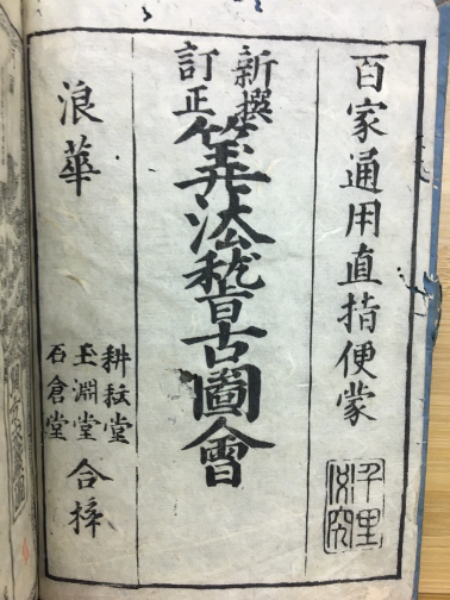 百家通用直指便蒙
千里
必究
新撰
訂正
筭法稽古圖會
浪華
玉淵堂
石倉堂
合梓